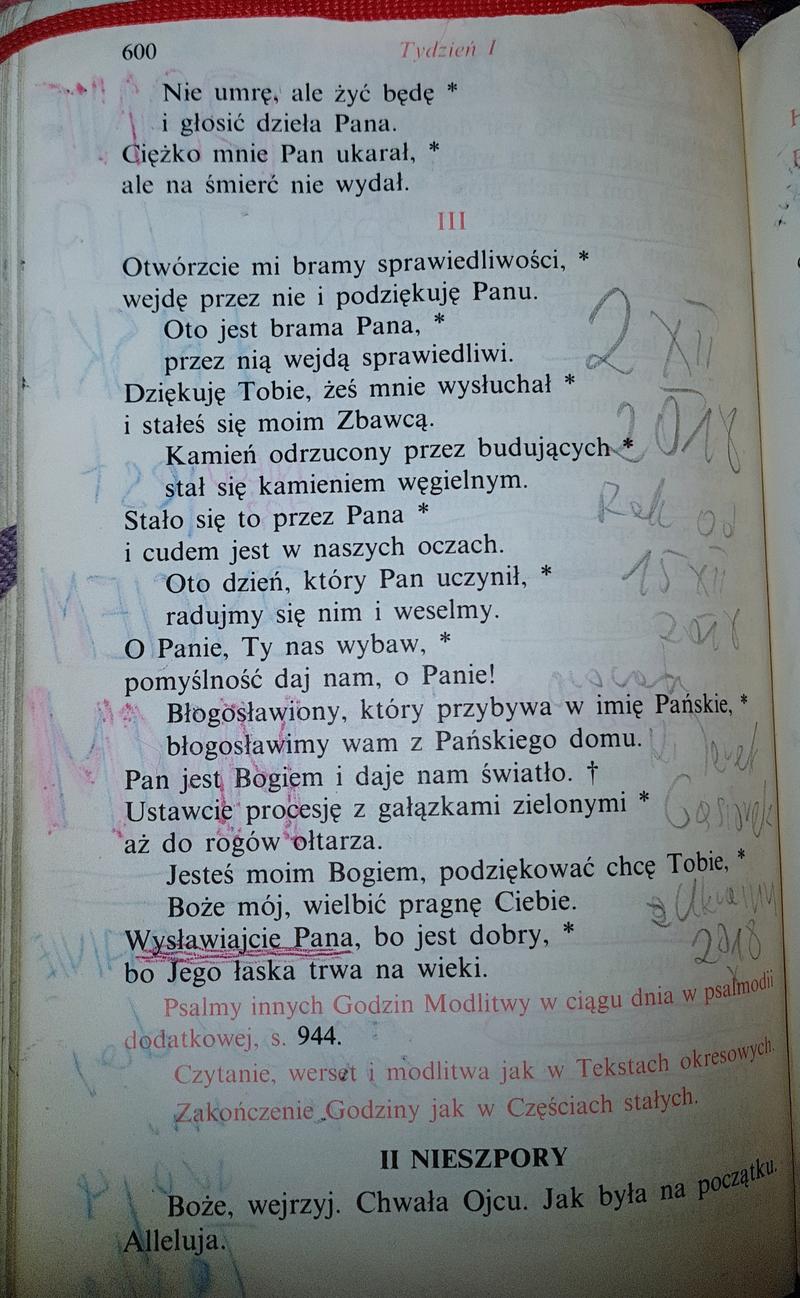 600
Tydzień I
Nie umrę, ale żyć będę *
i głosić dzieła Pana.
Ciężko mnie Pan ukarał, *
ale na śmierć nie wydał.
III
Otwórzcie mi bramy sprawiedliwości, *
wejdę przez nie i podziękuję Panu.
Oto jest brama Pana, *
przez nią wejdą sprawiedliwi.
Dziękuję Tobie, żeś mnie wysłuchał *
i stałeś się moim Zbawcą.
Kamień odrzucony przez budujących *
stał się kamieniem węgielnym.
Stało się to przez Pana *
i cudem jest w naszych oczach.
Oto dzień, który Pan uczynił, *
radujmy się nim i weselmy.
O Panie, Ty nas wybaw, *
pomyślność daj nam, o Panie!
Błogosławiony, który przybywa w imię Pańskie, *
błogosławimy wam z Pańskiego domu.
Pan jest Bogiem i daje nam światło. †
Ustawcie procesję z gałązkami zielonymi *
aż do rogów ołtarza.
Jesteś moim Bogiem, podziękować chcę Tobie, *
Boże mój, wielbić pragnę Ciebie.
Wysławiajcie Pana, bo jest dobry, *
bo Jego łaska trwa na wieki.
Psalmy innych Godzin Modlitwy w ciągu dnia w psalmodii
dodatkowej, s. 944.
Czytanie, werset i modlitwa jak w Tekstach okresowych.
Zakończenie Godziny jak w Częściach stałych.
II NIESZPORY
Boże, wejrzyj. Chwała Ojcu. Jak była na początku.
Alleluja.
2 XII
2018
Rok od
15 XII
2018
z Ukrainy
2018